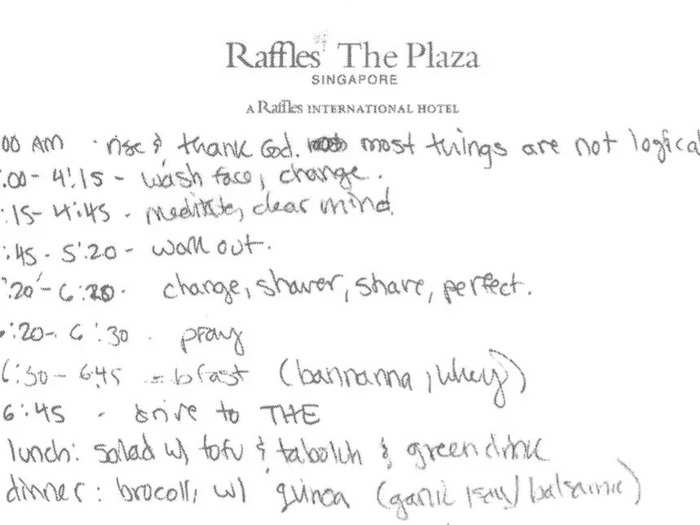 Raffles The Plaza
SINGAPORE
A Raffles INTERNATIONAL HOTEL
00 AM · rise & thank God. most things are not logical
:00 - 4:15 - wash face, change.
:15 - 4:45 - meditate, clear mind.
:45 - 5:20 - work out.
:20 - 6:20 - change, shower, share, perfect.
:20 - 6:30 - pray
6:30 - 6:45 - bfast (bannanna, whey)
6:45 - drive to THE
lunch: salad w/ tofu & tabolch & green drink
dinner: brocoli w/ quinoa (garlic /balsamic)